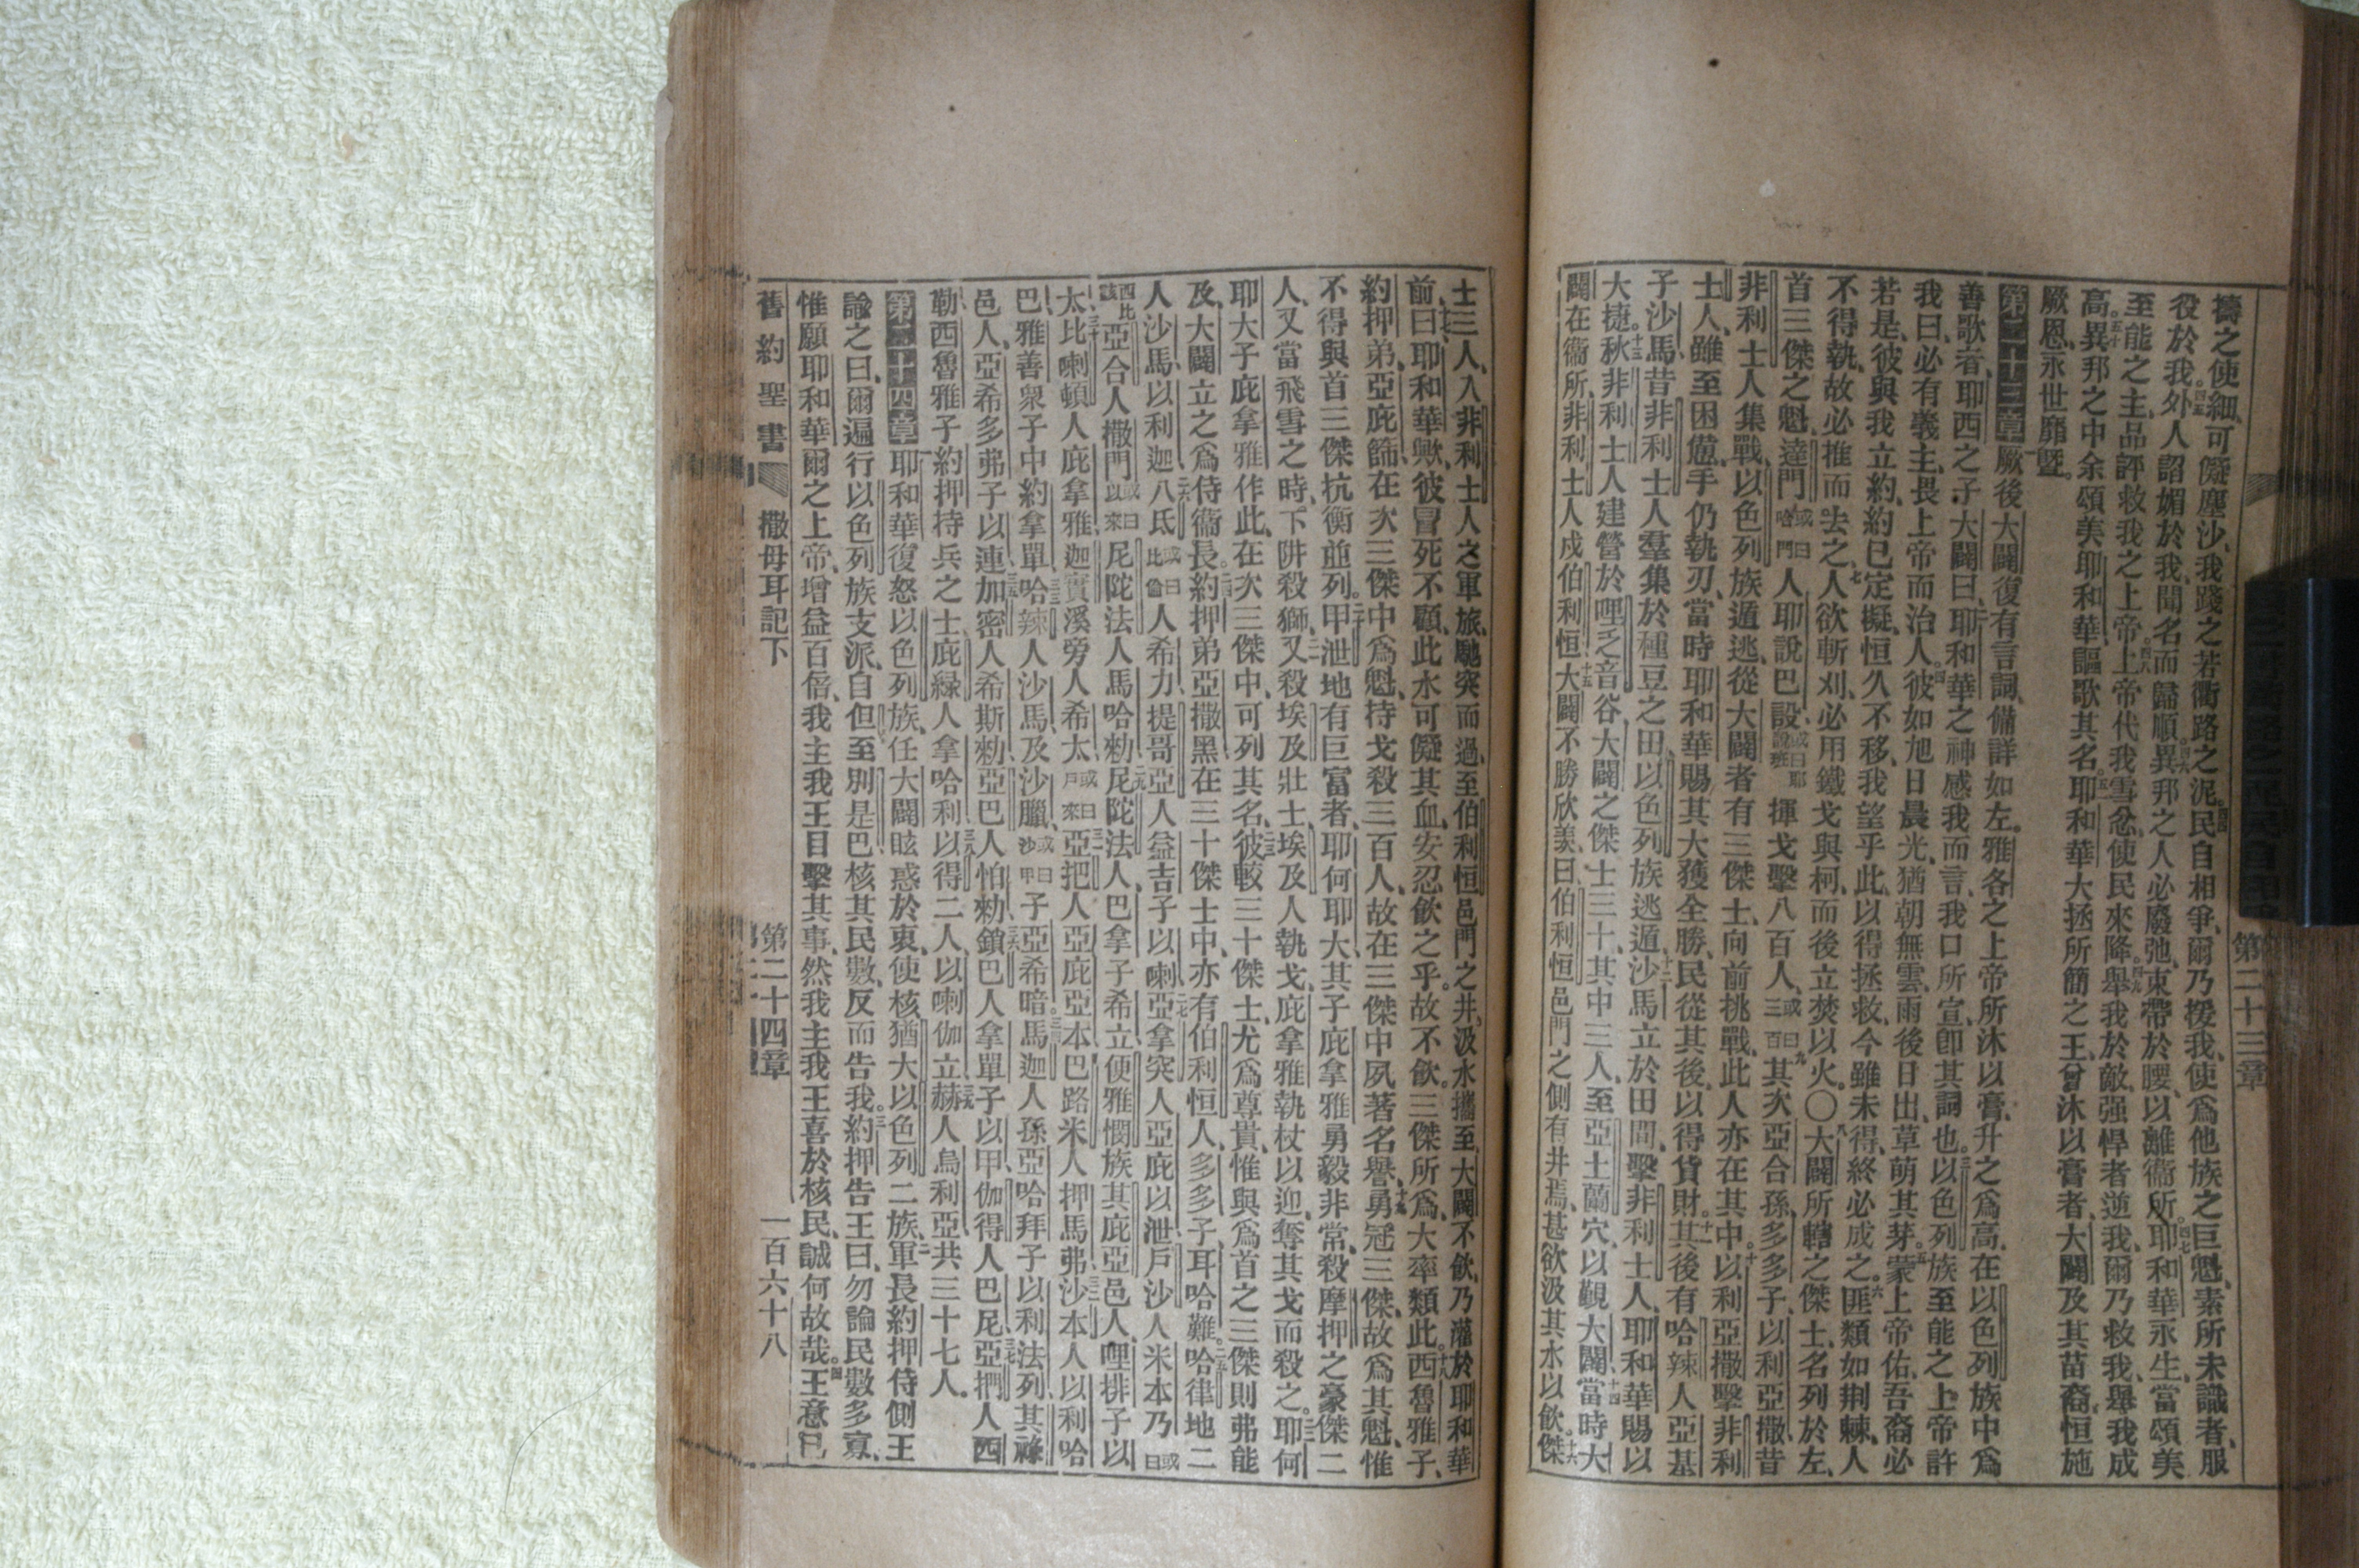 擣之使細、可儗塵沙、我踐之若衢路之泥。民自相爭、爾乃援我、使爲他族之巨魁、素所未識者、服
役於我。外人諂媚於我、聞名而歸順、異邦之人必廢弛、束帶於腰、以離衞所。耶和華永生、當頌美
至能之主、品評救我之上帝。上帝代我雪忿、使民來降、舉我於敵、强悍者逆我、爾乃救我、舉我成
高。異邦之中、余頌美耶和華、謳歌其名。耶和華大拯所簡之王、曾沐以膏者、大闢及其苗裔、恒施
厥恩、永世靡曁。
第二十三章 厥後大闢復有言詞、備詳如左。雅各之上帝所沐以膏、升之爲高、在以色列族中爲
善歌者、耶西之子大闢曰、耶和華之神感我而言、我口所宣、卽其詞也。以色列族至能之上帝許
我曰、必有義主、畏上帝而治人。彼如旭日晨光、猶朝無雲、雨後日出、草萌其芽。蒙上帝佑、吾裔必
若是、彼與我立約、約已定擬、恒久不移、我望乎此、以得拯救、今雖未得、終必成之。匪類如荆棘、人
不得執、故必推而去之、人欲斬刈、必用鐵戈與柯、而後立焚以火。〇大闢所轄之傑士、名列於左、
首三傑之魁、達門或曰哈門人耶說巴設、或曰耶說班揮戈擊八百人、或曰三百其次亞合孫、多多子、以利亞撒、昔
非利士人集戰、以色列族遁逃、從大闢者有三傑士、向前挑戰、此人亦在其中。以利亞撒擊非利
士人、雖至困憊、手仍執刃、當時耶和華賜其大獲全勝、民從其後、以得貨財。其後有哈辣人亞基
子沙馬、昔非利士人羣集於種豆之田、以色列族逃遁、沙馬立於田間、擊非利士人、耶和華賜以
大捷。秋、非利士人建營於哩乏音谷、大闢之傑士三十、其中三人、至亞土蘭穴、以覲大闢、當時大
闢在衞所、非利士人戍伯利恒、大闢不勝欣羡、曰、伯利恒邑門之側有井焉、甚欲汲其水以飲、傑
士三人、入非利士人之軍旅、馳突而過、至伯利恒邑門之井、汲水攜至、大闢不飲、乃灌於耶和華
前、曰、耶和華歟、彼冒死不顧、此水可儗其血、安忍飲之乎。故不飲。三傑所爲、大率類此。西魯雅子、
約押弟、亞庇篩、在次三傑中爲魁、持戈殺三百人、故在三傑中夙著名譽、勇冠三傑、故爲其魁、惟
不得與首三傑抗衡並列。甲泄地有巨富者、耶何耶大、其子庇拿雅勇毅非常、殺摩押之豪傑二
人、又當飛雪之時、下阱殺獅、又殺埃及壯士、埃及人執戈、庇拿雅執杖以迎、奪其戈而殺之。耶何
耶大子庇拿雅作此、在次三傑中、可列其名、彼較三十傑士、尤爲尊貴、惟與爲首之三傑則弗能
及、大闢立之爲侍衞長。約押弟亞撒黑在三十傑士中、亦有伯利恒人、多多子、耳哈難。哈律地二
人、沙馬、以利迦八氐、或曰比倫人希力、提哥亞人益吉子以喇、亞拿突人亞庇以泄、戶沙人米本乃、或曰
西比該亞合人撒門、或曰以來尼陀法人馬哈勑、尼陀法人巴拿子希立、便雅憫族其庇亞邑人、哩排子以
太、比喇頓人庇拿雅、迦實溪旁人希太、或曰戶來亞把人亞庇亞本、巴路米人押馬弗、沙本人以利哈
巴、雅善衆子中約拿單、哈辣人沙馬、及沙臘、或曰沙甲子亞希暗。馬迦人孫亞哈拜子以利法列、其祿
邑人、亞希多弗子以連、加密人希斯勑、亞巴人怕勑、鎖巴人拿單子以甲、伽得人巴尼、亞捫人西
勒、西魯雅子約押持兵之士、庇緑人拿哈利、以得二人、以喇、伽立、赫人烏利亞、共三十七人。
第二十四章 耶和華復怒以色列族、任大闢眩惑於衷、使核猶大以色列二族、軍長約押侍側、王
諭之曰、爾遍行以色列族支派、自但至別是巴、核其民數、反而告我。約押告王曰、勿論民數多寡、
惟願耶和華爾之上帝、增益百倍、我主我王目擊其事、然我主我王喜於核民、誠何故哉。王意已
舊約聖書 撒母耳記下 第二十四章 一百六十八
第二十三章